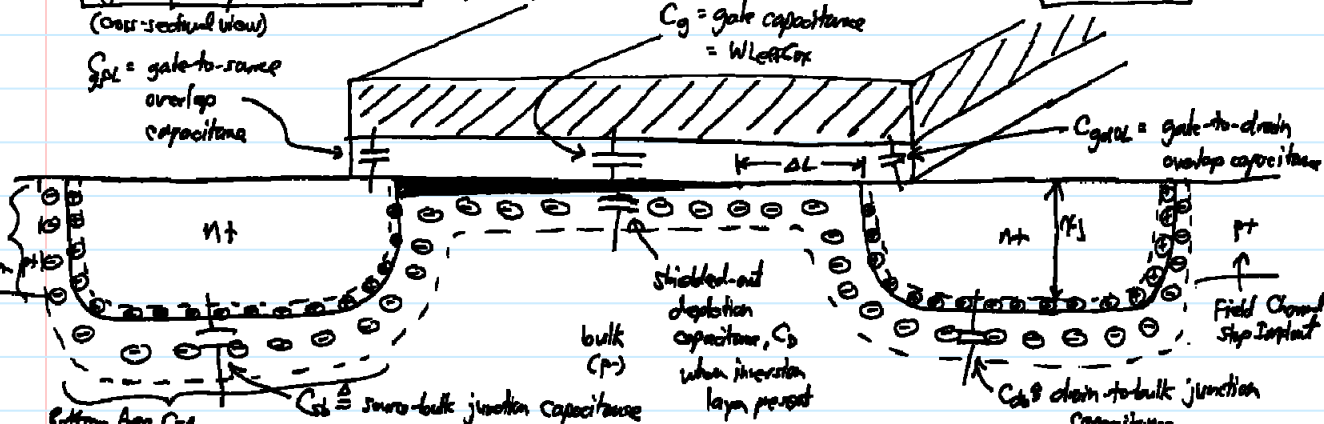 (cross-sectional view)
Cg = gate capacitance
= WLeffCox
CgsOL = gate-to-source
overlap
capacitance
CgdOL = gate-to-drain
overlap capacitance
ΔL
n+
n+
xj
p+
p+
shielded-out
depletion
capacitance, CD
when inversion
layer present
bulk
(p-)
Field Channel
Stop Implant
Csb ≜ source-bulk junction capacitance
Cdb ≜ drain-to-bulk junction
capacitance
Bottom Area Cap